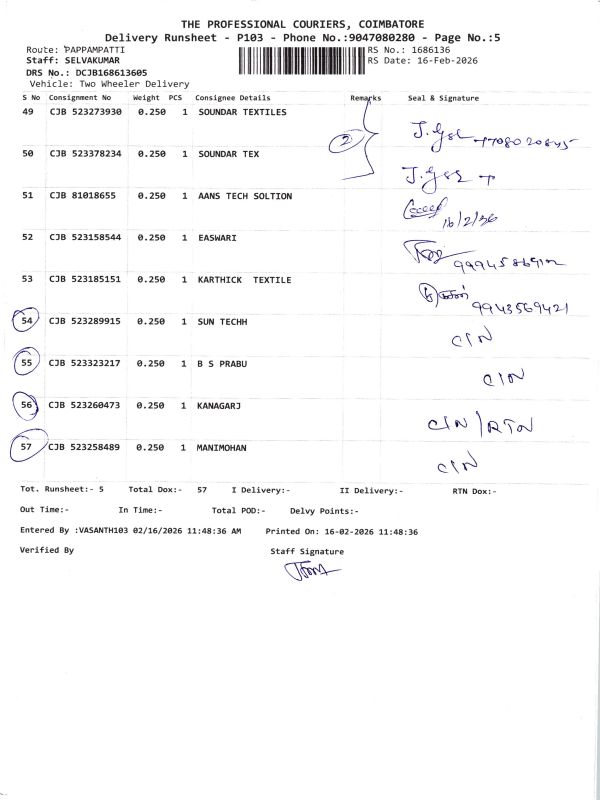 THE PROFESSIONAL COURIERS, COIMBATORE
Delivery Runsheet - P103 - Phone No.:9047080280 - Page No.:5
Route: PAPPAMPATTI RS No.: 1686136
Staff: SELVAKUMAR RS Date: 16-Feb-2026
DRS No.: DCJB168613605
Vehicle: Two Wheeler Delivery
S No Consignment No Weight PCS Consignee Details Remarks Seal & Signature
49 CJB 523273930 0.250 1 SOUNDAR TEXTILES
2
50 CJB 523378234 0.250 1 SOUNDAR TEX
51 CJB 81018655 0.250 1 AANS TECH SOLTION
16/2/26
52 CJB 523158544 0.250 1 EASWARI
53 CJB 523185151 0.250 1 KARTHICK TEXTILE
9943569421
54 CJB 523289915 0.250 1 SUN TECHH CIN
55 CJB 523323217 0.250 1 B S PRABU CIN
56 CJB 523260473 0.250 1 KANAGARJ CIN/RTN
57 CJB 523258489 0.250 1 MANIMOHAN CIN
Tot. Runsheet:- 5 Total Dox:- 57 I Delivery:- II Delivery:- RTN Dox:-
Out Time:- In Time:- Total POD:- Delvy Points:-
Entered By :VASANTH103 02/16/2026 11:48:36 AM Printed On: 16-02-2026 11:48:36
Verified By Staff Signature